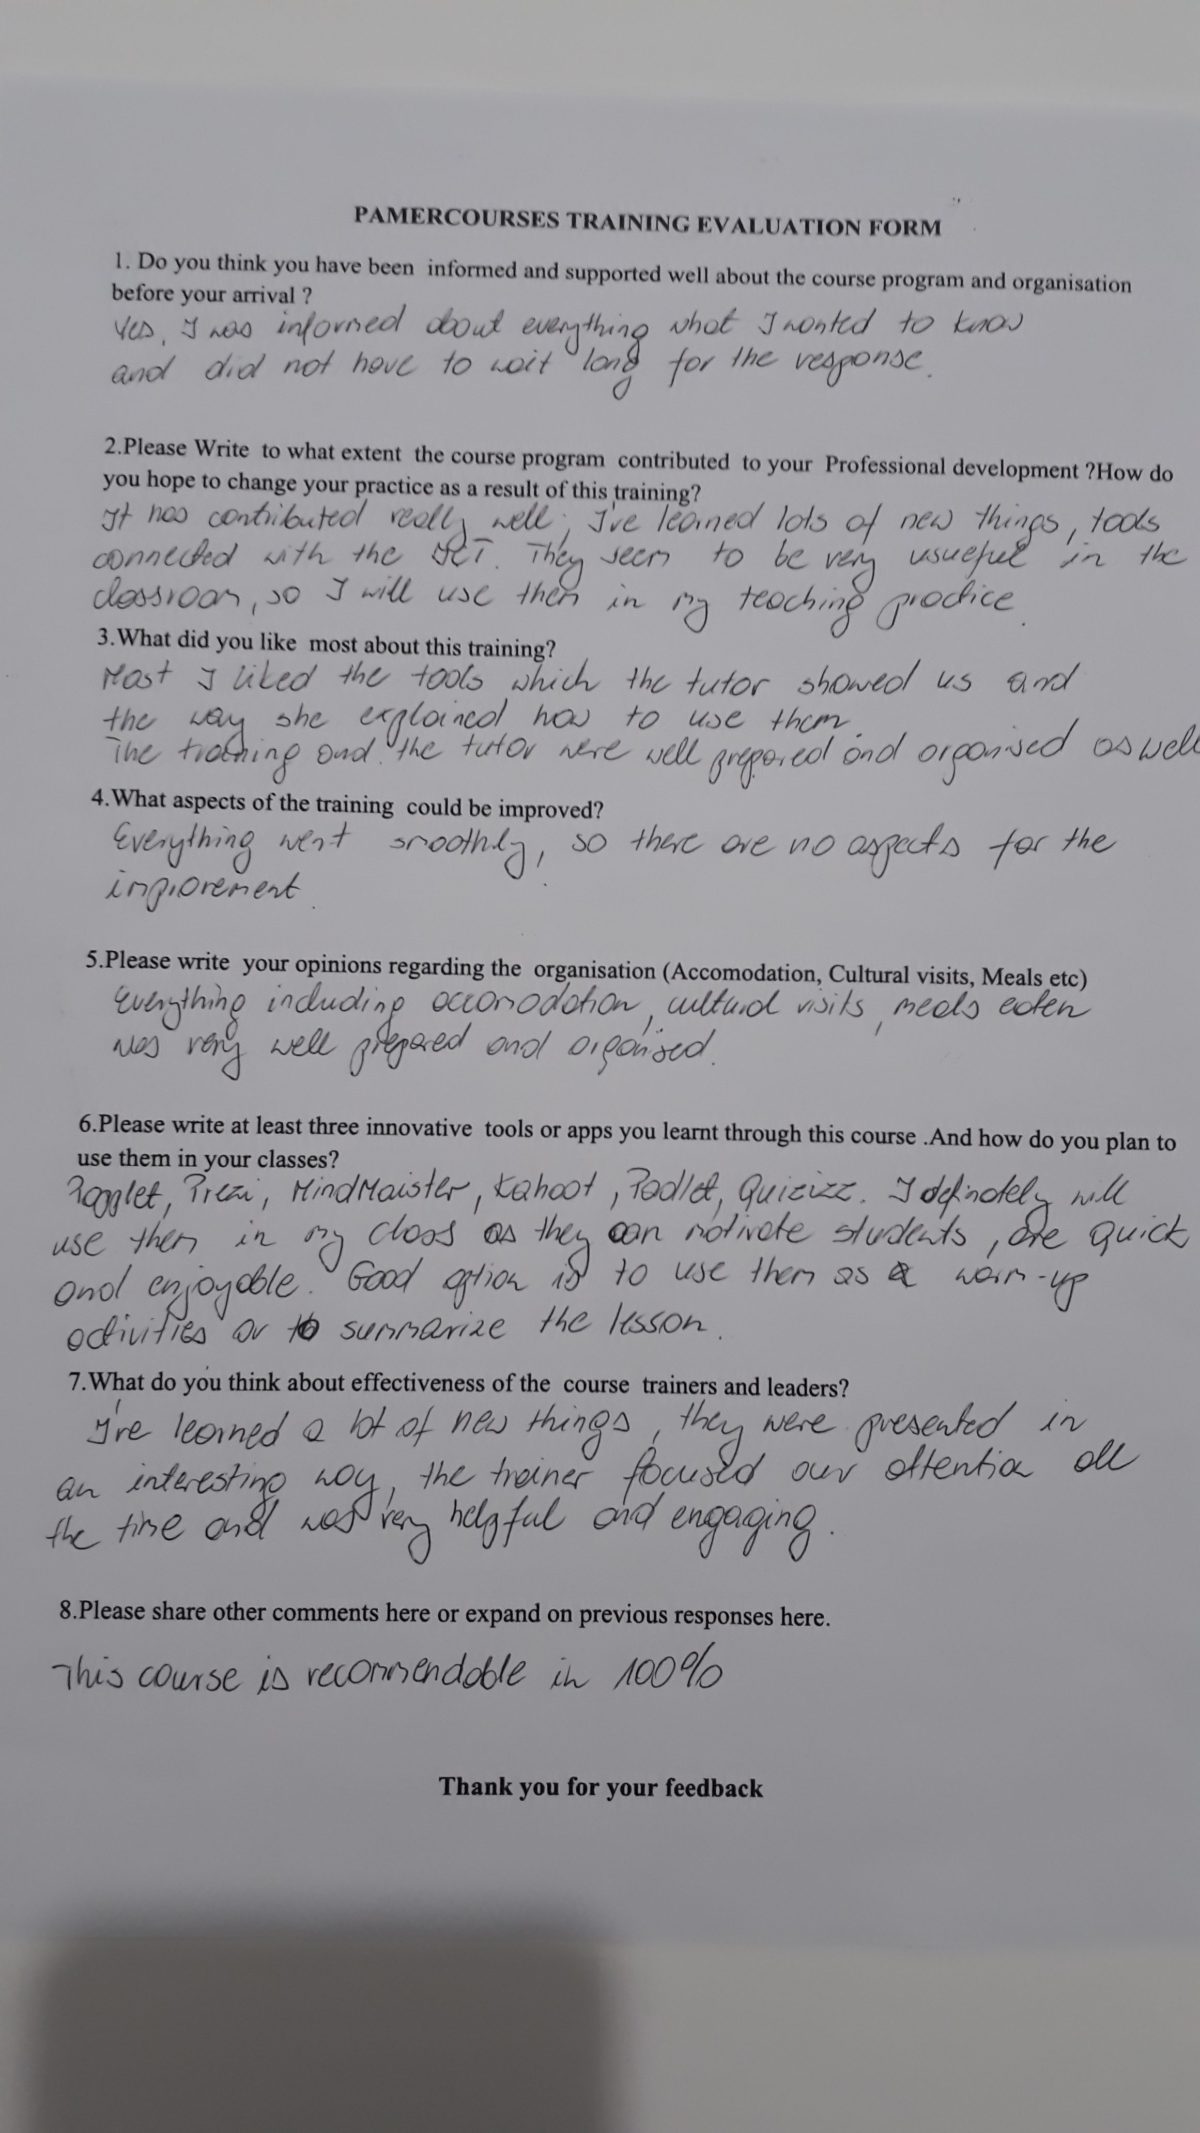 PAMERCOURSES TRAINING EVALUATION FORM
1. Do you think you have been informed and supported well about the course program and organisation
before your arrival ?
Yes, I was informed about everything what I wanted to know
and did not have to wait long for the response.
2.Please Write to what extent the course program contributed to your Professional development ?How do
you hope to change your practice as a result of this training?
It has contributed really well; I've learned lots of new things, tools
connected with the . They seem to be very usueful in the
classroom, so I will use them in my teaching practice.
3.What did you like most about this training?
Most I liked the tools which the tutor showed us and
the way she explained how to use them.
The training and the tutor were well prepared and organised as well
4.What aspects of the training could be improved?
Everything went smoothly, so there are no aspects for the
improrement.
5.Please write your opinions regarding the organisation (Accomodation, Cultural visits, Meals etc)
Everything including accomodation, cultural visits, meals eaten
was very well prepared and organised.
6.Please write at least three innovative tools or apps you learnt through this course .And how do you plan to
use them in your classes?
Prezi, MindMaister, Kahoot, Padlet, Quizizz. I definately will
use them in my class as they can motivate students, are quick
and enjoyable. Good option is to use them as a warm-up
activities or to summarize the lesson.
7.What do you think about effectiveness of the course trainers and leaders?
I've learned a lot of new things, they were presented in
an interesting way, the trainer focused our attention all
the time and was very helpful and engaging.
8.Please share other comments here or expand on previous responses here.
This course is recommendable in 100%
Thank you for your feedback